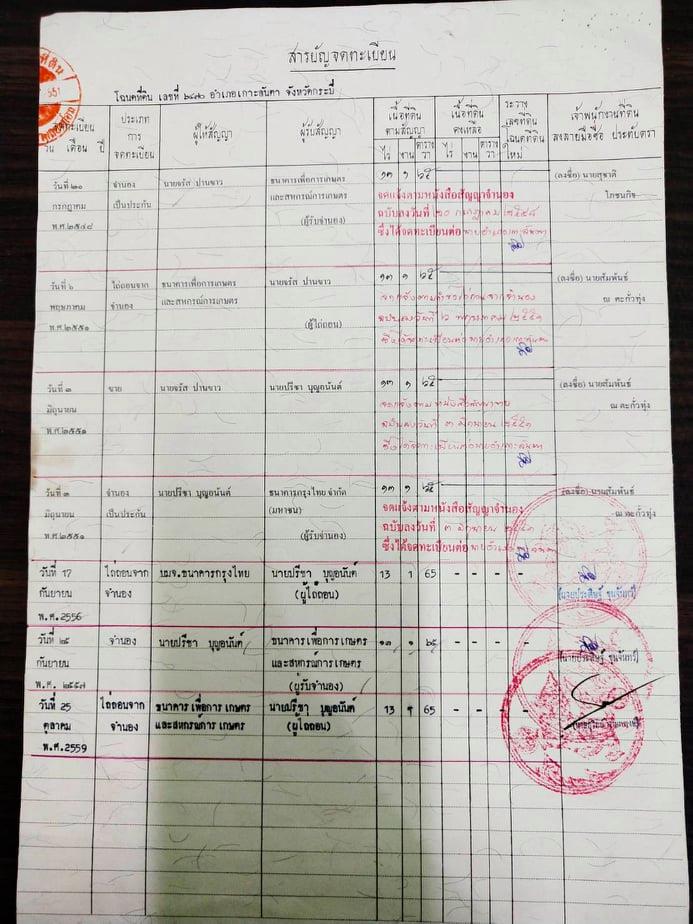 สารบัญจดทะเบียน
โฉนดที่ดิน เลขที่ ๒๔๗๐ อำเภอเกาะลันตา จังหวัดกระบี่
จดทะเบียน วัน เดือน ปี
ประเภท การ จดทะเบียน
ผู้ให้สัญญา
ผู้รับสัญญา
เนื้อที่ดิน ตามสัญญา ไร่ งาน ตาราง วา
เนื้อที่ดิน คงเหลือ ไร่ งาน ตาราง วา
ระวาง เลขที่ดิน โฉนดที่ดิน ใหม่
เจ้าพนักงานที่ดิน ลงลายมือชื่อ ประทับตรา
วันที่ ๒๐ จำนอง นายจรัส ปานขาว ธนาคารเพื่อการเกษตร ๑๓ ๑ ๖๕ (ลงชื่อ) นายสุชาติ
กรกฎาคม เป็นประกัน และสหกรณ์การเกษตร จดแจ้งตามหนังสือสัญญาจำนอง โภชนกิจ
พ.ศ.๒๕๔๘ (ผู้รับจำนอง) ฉบับลงวันที่ ๒๐ กรกฎาคม ๒๕๔๘
ซึ่งได้จดทะเบียนต่อ นายอำเภอเกาะลันตา
วันที่ ๖ ไถ่ถอนจาก ธนาคารเพื่อการเกษตร นายจรัส ปานขาว ๑๓ ๑ ๖๕ (ลงชื่อ) นายสัมพันธ์
พฤษภาคม จำนอง และสหกรณ์การเกษตร ณ ตะกั่วทุ่ง
พ.ศ.๒๕๕๑ (ผู้ไถ่ถอน) ฉบับลงวันที่ ๖ พฤษภาคม ๒๕๕๑
ซึ่งได้จดทะเบียนต่อ นายอำเภอเกาะลันตา
วันที่ ๓ ขาย นายจรัส ปานขาว นายปรีชา บุญอนันต์ ๑๓ ๑ ๖๕ (ลงชื่อ) นายสัมพันธ์
มิถุนายน จดแจ้งตามหนังสือสัญญาขาย ณ ตะกั่วทุ่ง
พ.ศ.๒๕๕๑ ฉบับลงวันที่ ๓ มิถุนายน ๒๕๕๑
ซึ่งได้จดทะเบียนต่อนายอำเภอเกาะลันตา
วันที่ ๓ จำนอง นายปรีชา บุญอนันต์ ธนาคารกรุงไทย จำกัด ๑๓ ๑ ๖๕ (ลงชื่อ) นายสัมพันธ์
มิถุนายน เป็นประกัน (มหาชน) จดแจ้งตามหนังสือสัญญาจำนอง ณ ตะกั่วทุ่ง
พ.ศ.๒๕๕๑ (ผู้รับจำนอง) ฉบับลงวันที่ ๓ มิถุนายน ๒๕๕๑
ซึ่งได้จดทะเบียนต่อ นายอำเภอเกาะลันตา
วันที่ 17 ไถ่ถอนจาก บมจ.ธนาคารกรุงไทย นายปรีชา บุญอนันต์ 13 1 65 - - - -
กันยายน จำนอง (ผู้ไถ่ถอน) (นายประสิษฐ์ ขุนจันทร์)
พ.ศ.2556
วันที่ ๒๕ จำนอง นายปรีชา บุญอนันต์ ธนาคารเพื่อการเกษตร ๑๓ ๑ ๖๕ - - - -
กันยายน และสหกรณ์การเกษตร (นายประสิษฐ์ ขุนจันทร์)
พ.ศ. ๒๕๕๗ (ผู้รับจำนอง)
วันที่ 25 ไถ่ถอนจาก ธนาคารเพื่อการเกษตร นายปรีชา บุญอนันต์ 13 1 65 - - - -
ตุลาคม จำนอง และสหกรณ์การเกษตร (ผู้ไถ่ถอน)
พ.ศ.2559